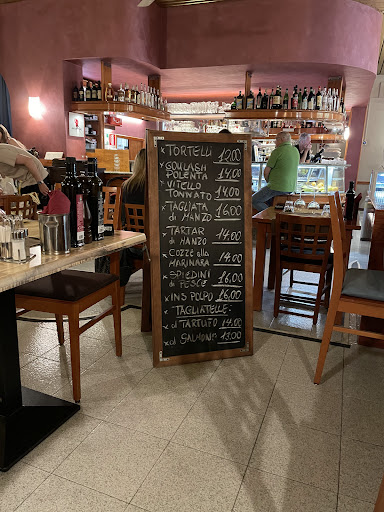 x TORTELLI 12,00
x GOULASH
POLENTA 14,00
x VITELLO
TONNATO 14,00
x TAGLIATA
di MANZO 16,00
x TARTAR
di MANZO 14,00
x COZZE alla
MARINARA 14,00
x SPIEDINI
di PESCE 16,00
x INS POLPO 16,00
x TAGLIATELLE:
x al TARTUFO 14,00
x al SALMONE 13,00